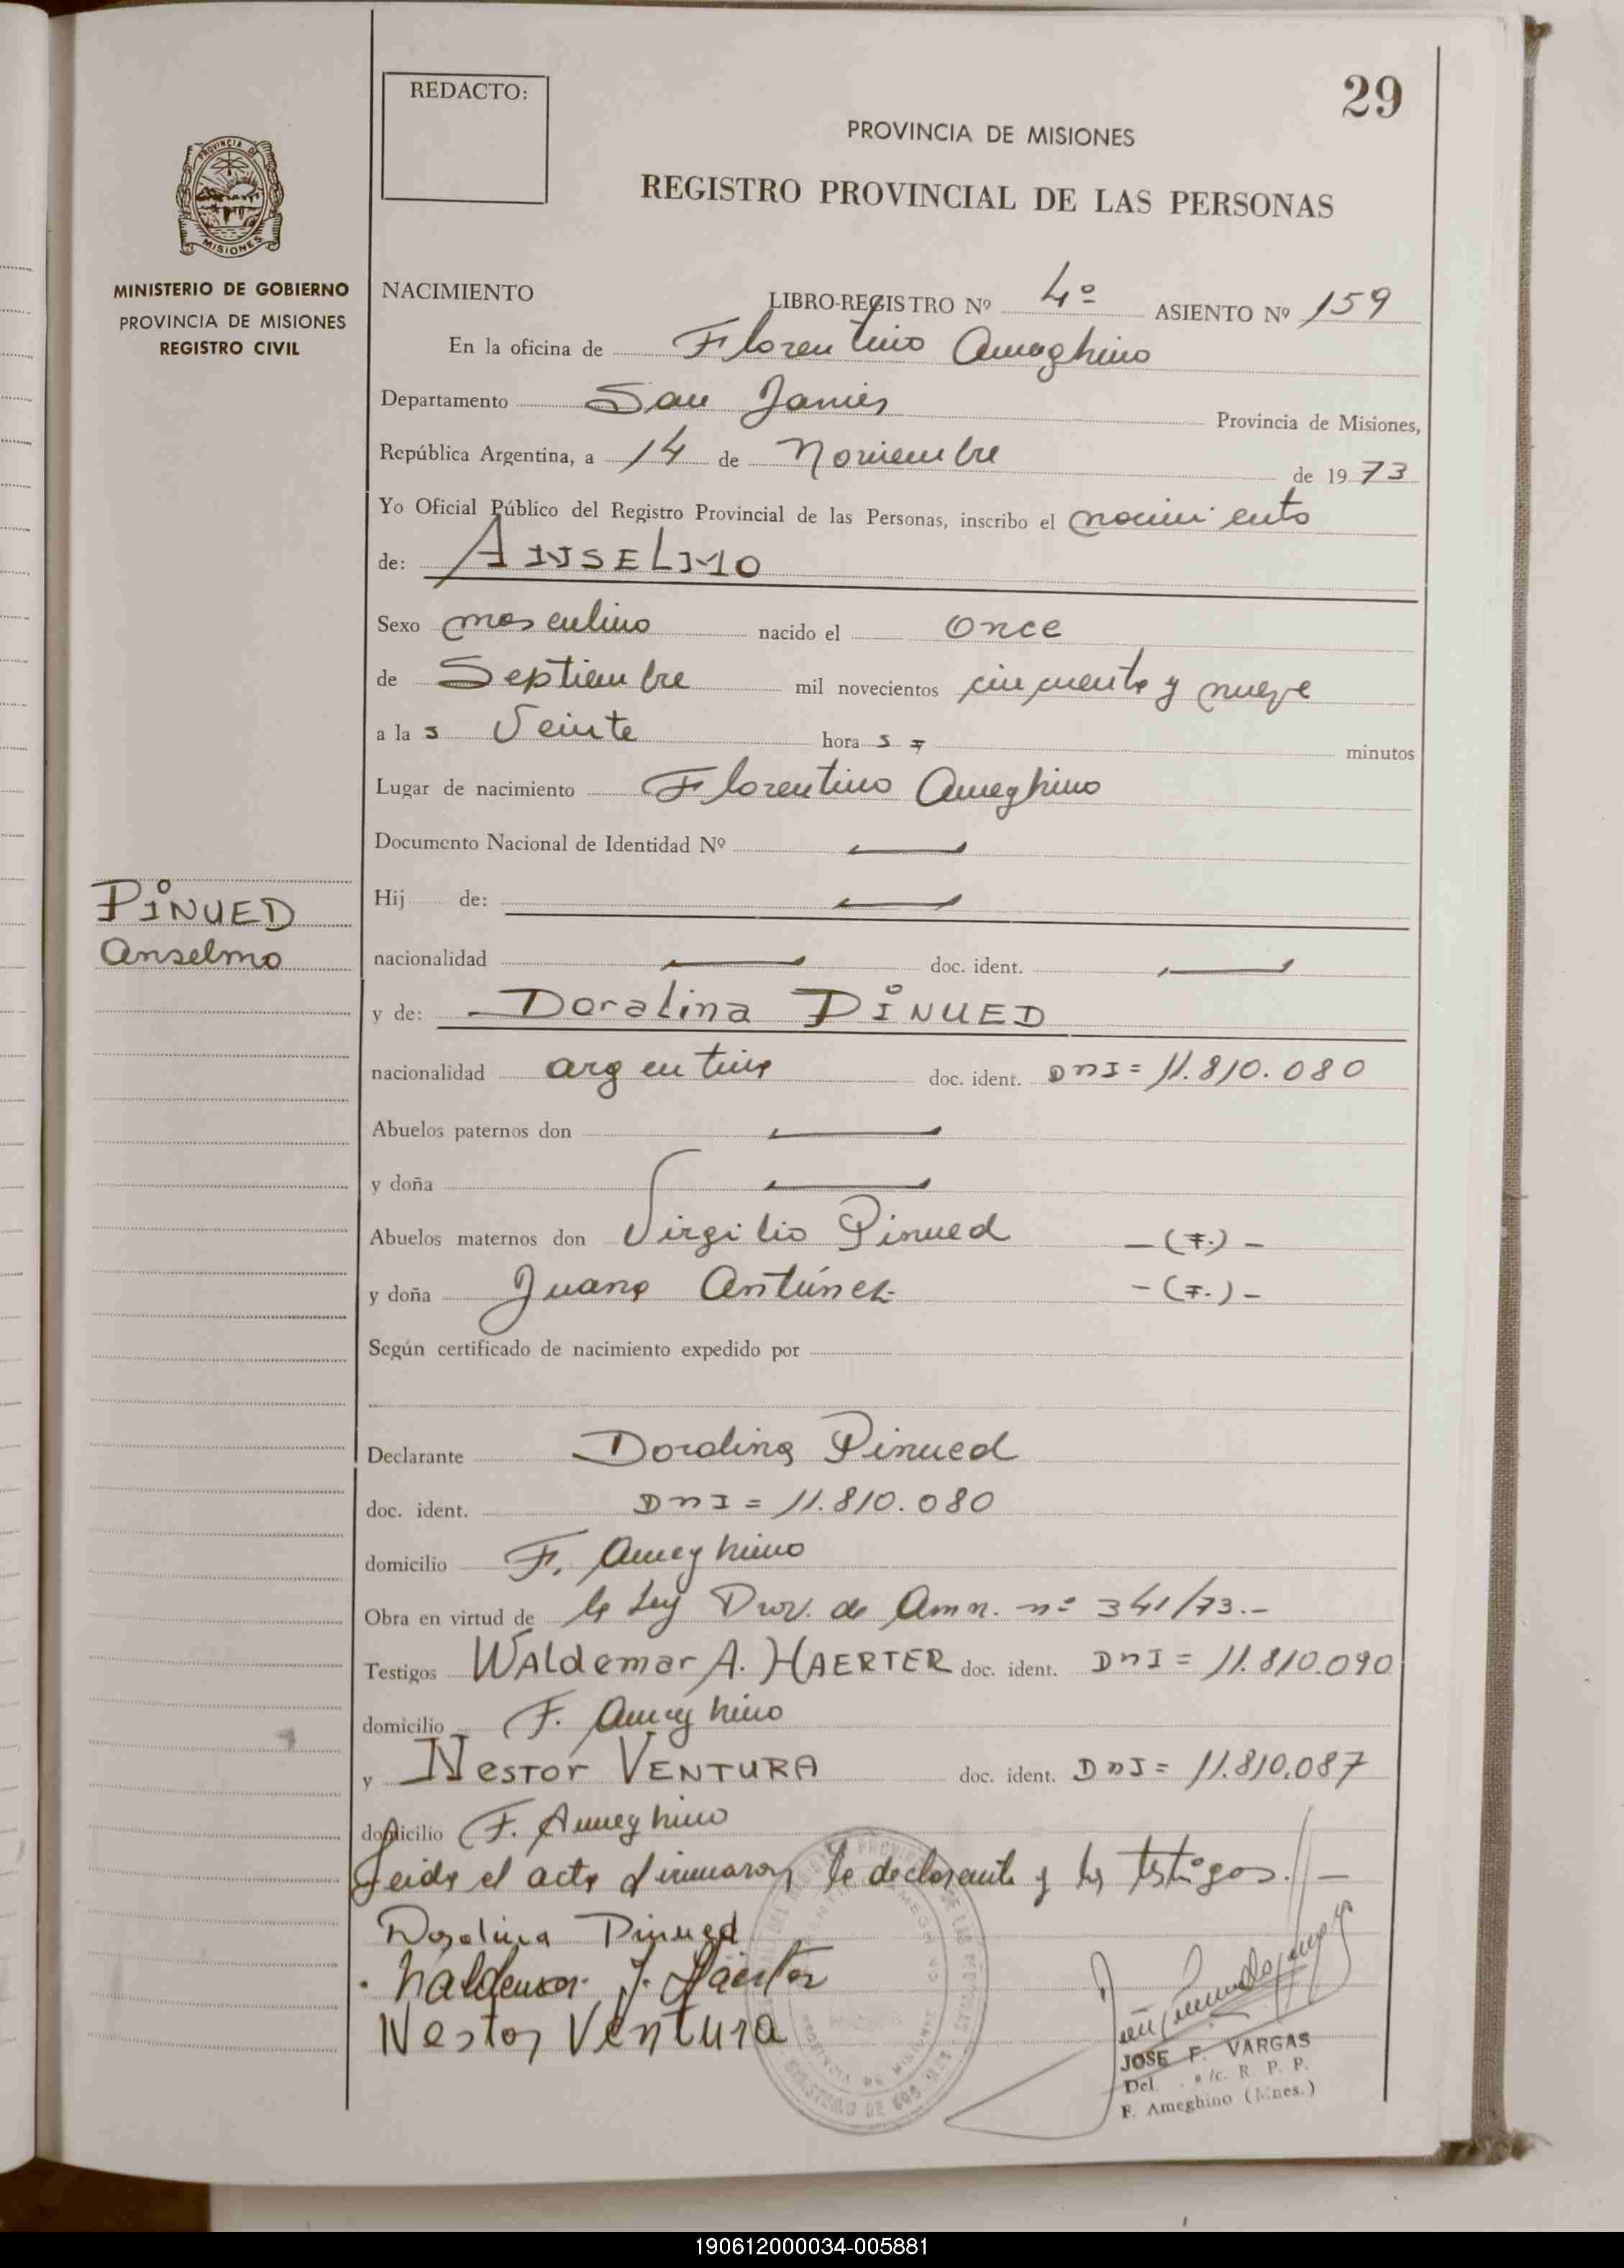 29
REDACTO:
PROVINCIA DE MISIONES
REGISTRO PROVINCIAL DE LAS PERSONAS
PROVINCIA DE MISIONES
MINISTERIO DE GOBIERNO
PROVINCIA DE MISIONES
REGISTRO CIVIL
NACIMIENTO LIBRO-REGISTRO Nº 4º ASIENTO Nº 159
En la oficina de Florentino Ameghino
Departamento San Javier Provincia de Misiones,
República Argentina, a 14 de Noviembre de 1973
Yo Oficial Público del Registro Provincial de las Personas, inscribo el nacimiento
de: ANSELMO
Sexo masculino nacido el once
de Septiembre mil novecientos cincuenta y nueve
a las Veinte horas minutos
Lugar de nacimiento Florentino Ameghino
Documento Nacional de Identidad Nº
Hij de:
PINUED
Anselmo
nacionalidad doc. ident.
y de: Doralina PINUED
nacionalidad argentina doc. ident. DNI = 11.810.080
Abuelos paternos don
y doña
Abuelos maternos don Virgilio Pinued -(F.)-
y doña Juana Antúnez -(F.)-
Según certificado de nacimiento expedido por
Declarante Doralina Pinued
doc. ident. DNI = 11.810.080
domicilio F. Ameghino
Obra en virtud de la Ley Prov. de Amn. nº 341/73.-
Testigos Waldemar A. HAERTER doc. ident. DNI = 11.810.090
domicilio F. Ameghino
y Nestor VENTURA doc. ident. DNI = 11.810.087
domicilio F. Ameghino
Leida el acta firmaron la declarante y los testigos.//-
Doralina Pinued
Waldemar Haerter
Nestor Ventura
JOSE F. VARGAS
Del. a/c. R. P. P.
F. Ameghino (Mnes.)
190612000034-005881